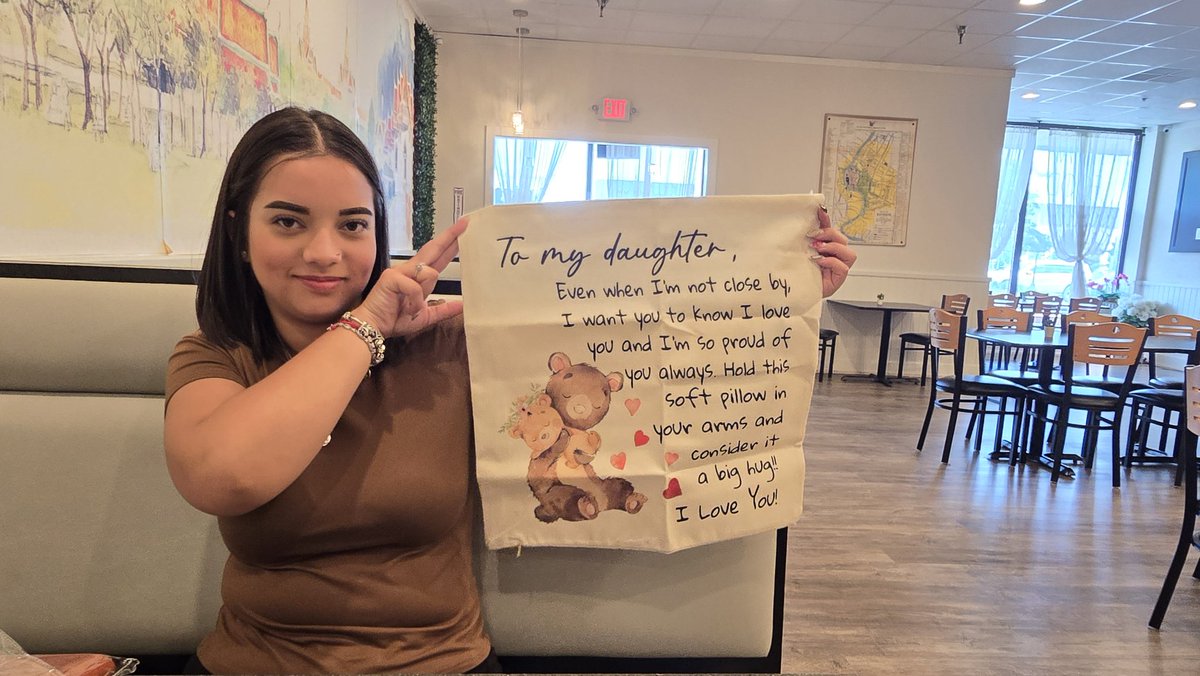 EXIT
To my daughter,
Even when I'm not close by,
I want you to know I love
you and I'm so proud of
you always. Hold this
soft pillow in
your arms and
consider it
a big hug!!
I Love You!